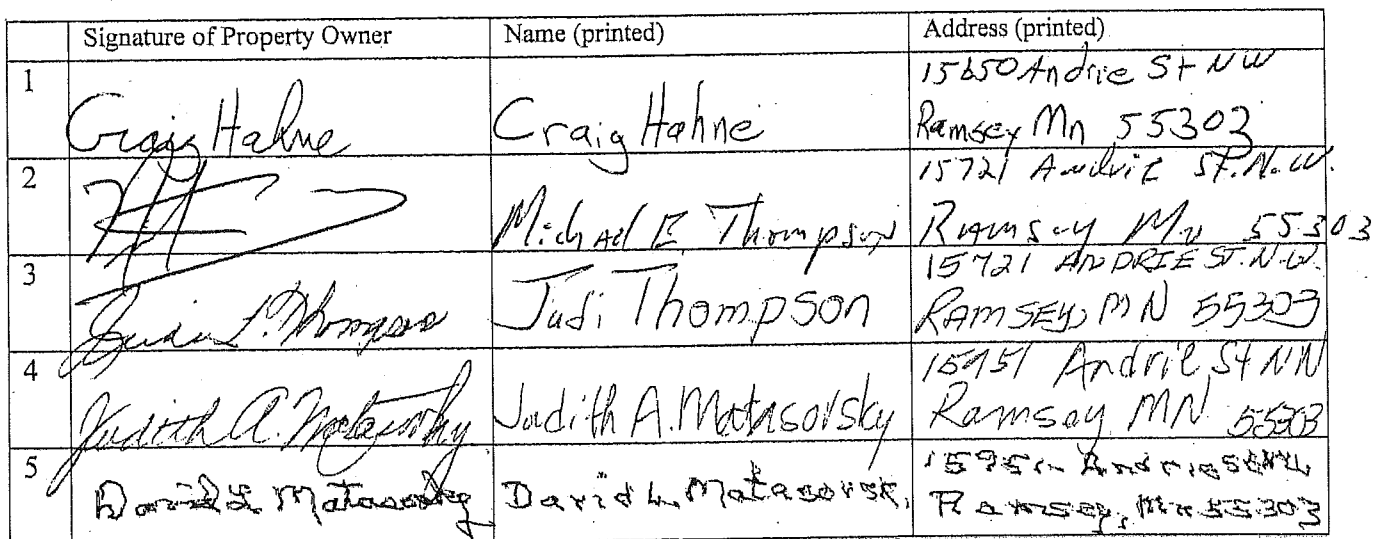 Signature of Property Owner Name (printed) Address (printed)
1 Craig Hahne Craig Hahne 15650 Andrie St NW
Ramsey Mn 55303
2 Michael E Thompson 15721 Andrie St. N.W.
Ramsey Mn 55303
3 Judi L. Thompson Judi Thompson 15721 ANDRIE ST. N.W.
RAMSEY, MN 55303
4 Judith A. Matasovsky Judith A. Matasovsky 15951 Andrie St NW
Ramsey MN 55303
5 David L Matasovsky David L. Matasovsk, 15951 Andrie St NW
Ramsey, Mn 55303